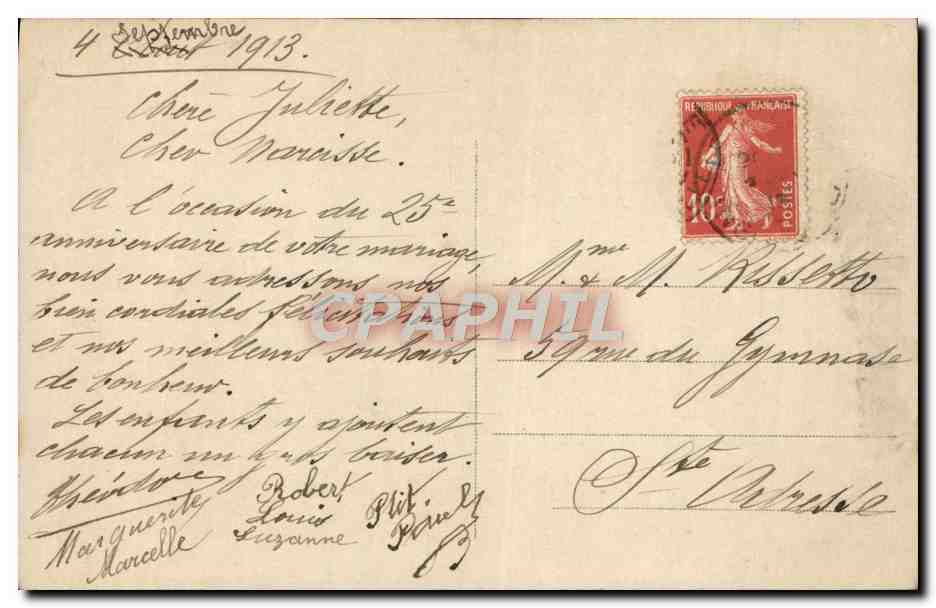 Septembre
4 1913.
Chère Juliette,
Cher Narcisse.
A l'occasion du 25e
anniversaire de votre mariage,
nous vous adressons nos
bien cordiales félicitations
et nos meilleurs souhaits
de bonheur.
Les enfants y ajoutent
chacun un gros baiser.
Théodore
Marguerite
Marcelle
Robert
Louis
Suzanne
Ptit
REPUBLIQUE FRANÇAISE
10c
POSTES
Mme & M. Rissetto
59 rue du Gymnase
Ste Adresse
CPAPHIL